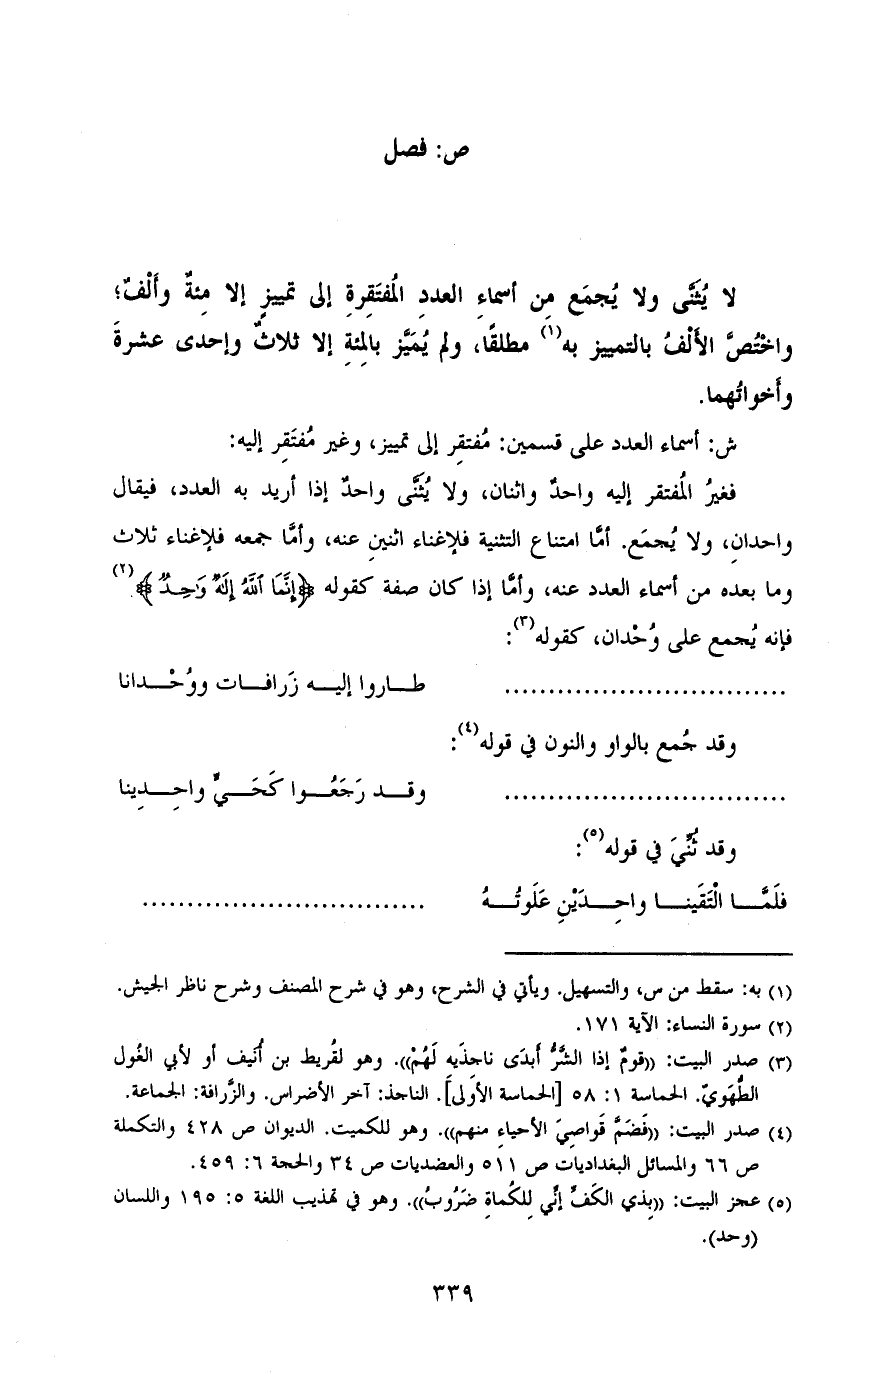 ص: فصل
لا يُثَنَّى ولا يُجمَع مِن أسماءِ العددِ المُفتَقِرةِ إلى تمييزٍ إلا مِئةٌ وأَلْفٌ؛
واخْتُصَّ الأَلْفُ بالتمييز به(١) مطلقًا، ولم يُمَيَّز بالمِئة إلا ثلاثٌ وإحدى عشرةَ
وأَخواتُهما.
ش: أسماء العدد على قسمين: مُفتقِر إلى تمييز، وغير مُفتَقِر إليه:
فغيرُ المُفتقر إليه واحدٌ واثنان، ولا يُثَنَّى واحدٌ إذا أريد به العدد، فيقال
واحدانِ، ولا يُجمَع. أمَّا امتناع التثنية فلإغناء اثنينِ عنه، وأمَّا جمعه فلإغناء ثلاث
وما بعده من أسماء العدد عنه، وأمَّا إذا كان صفة كقوله ﴿إِنَّمَا ٱللَّهُ إِلَٰهٌ وَٰحِدٌ﴾(٢)
فإنه يُجمع على وُحْدان، كقوله(٣):
................................ طـاروا إليـه زَرافـات ووُحْـدانا
وقد جُمع بالواو والنون في قوله(٤):
................................ وقـد رَجَعُـوا كَحَـيٍّ واحِـدِينا
وقد ثُنِّيَ في قوله(٥):
فلَمَّـا الْتَقَينـا واحِـدَيْنِ عَلَوتُـهُ ................................
(١) به: سقط من س، والتسهيل. ويأتي في الشرح، وهو في شرح المصنف وشرح ناظر الجيش.
(٢) سورة النساء: الآية ١٧١.
(٣) صدر البيت: ((قومٌ إذا الشَّرُّ أَبدَى ناجذَيهِ لَهُمْ)). وهو لقُريط بن أُنَيف أو لأبي الغُول
الطُّهَويّ. الحماسة ١: ٥٨ [الحماسة الأولى]. الناجذ: آخر الأضراس. والزَّرافة: الجماعة.
(٤) صدر البيت: ((فَضَمَّ قَواصِيَ الأحياءِ منهم)). وهو للكميت. الديوان ص ٤٢٨ والتكملة
ص ٦٦ والمسائل البغداديات ص ٥١١ والعضديات ص ٣٤ والحجة ٦: ٤٥٩.
(٥) عجز البيت: ((بِذي الكَفِّ إنِّي لِلكُماةِ ضَرُوبُ)). وهو في تهذيب اللغة ٥: ١٩٥ واللسان
(وحد).
٣٣٩